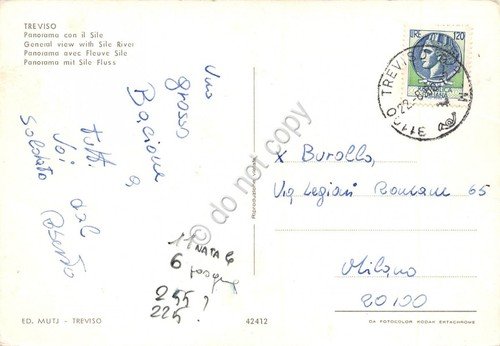 TREVISO
Panorama con il Sile
General view with Sile River
Panorama avec Fleuve Sile
Panorama mit Sile Fluss
LIRE 120
31100 TREVISO
Uno
grosso
Bacione
a
tutti
Voi dal
Soldato Roberto
X Burollo,
Via Legioni Romane 65
Milano
20100
11 NATALE
6
255
225
ED. MUTJ - TREVISO
42412
DA FOTOCOLOR KODAK EKTACHROME
Riproduzione vietata
© do not copy